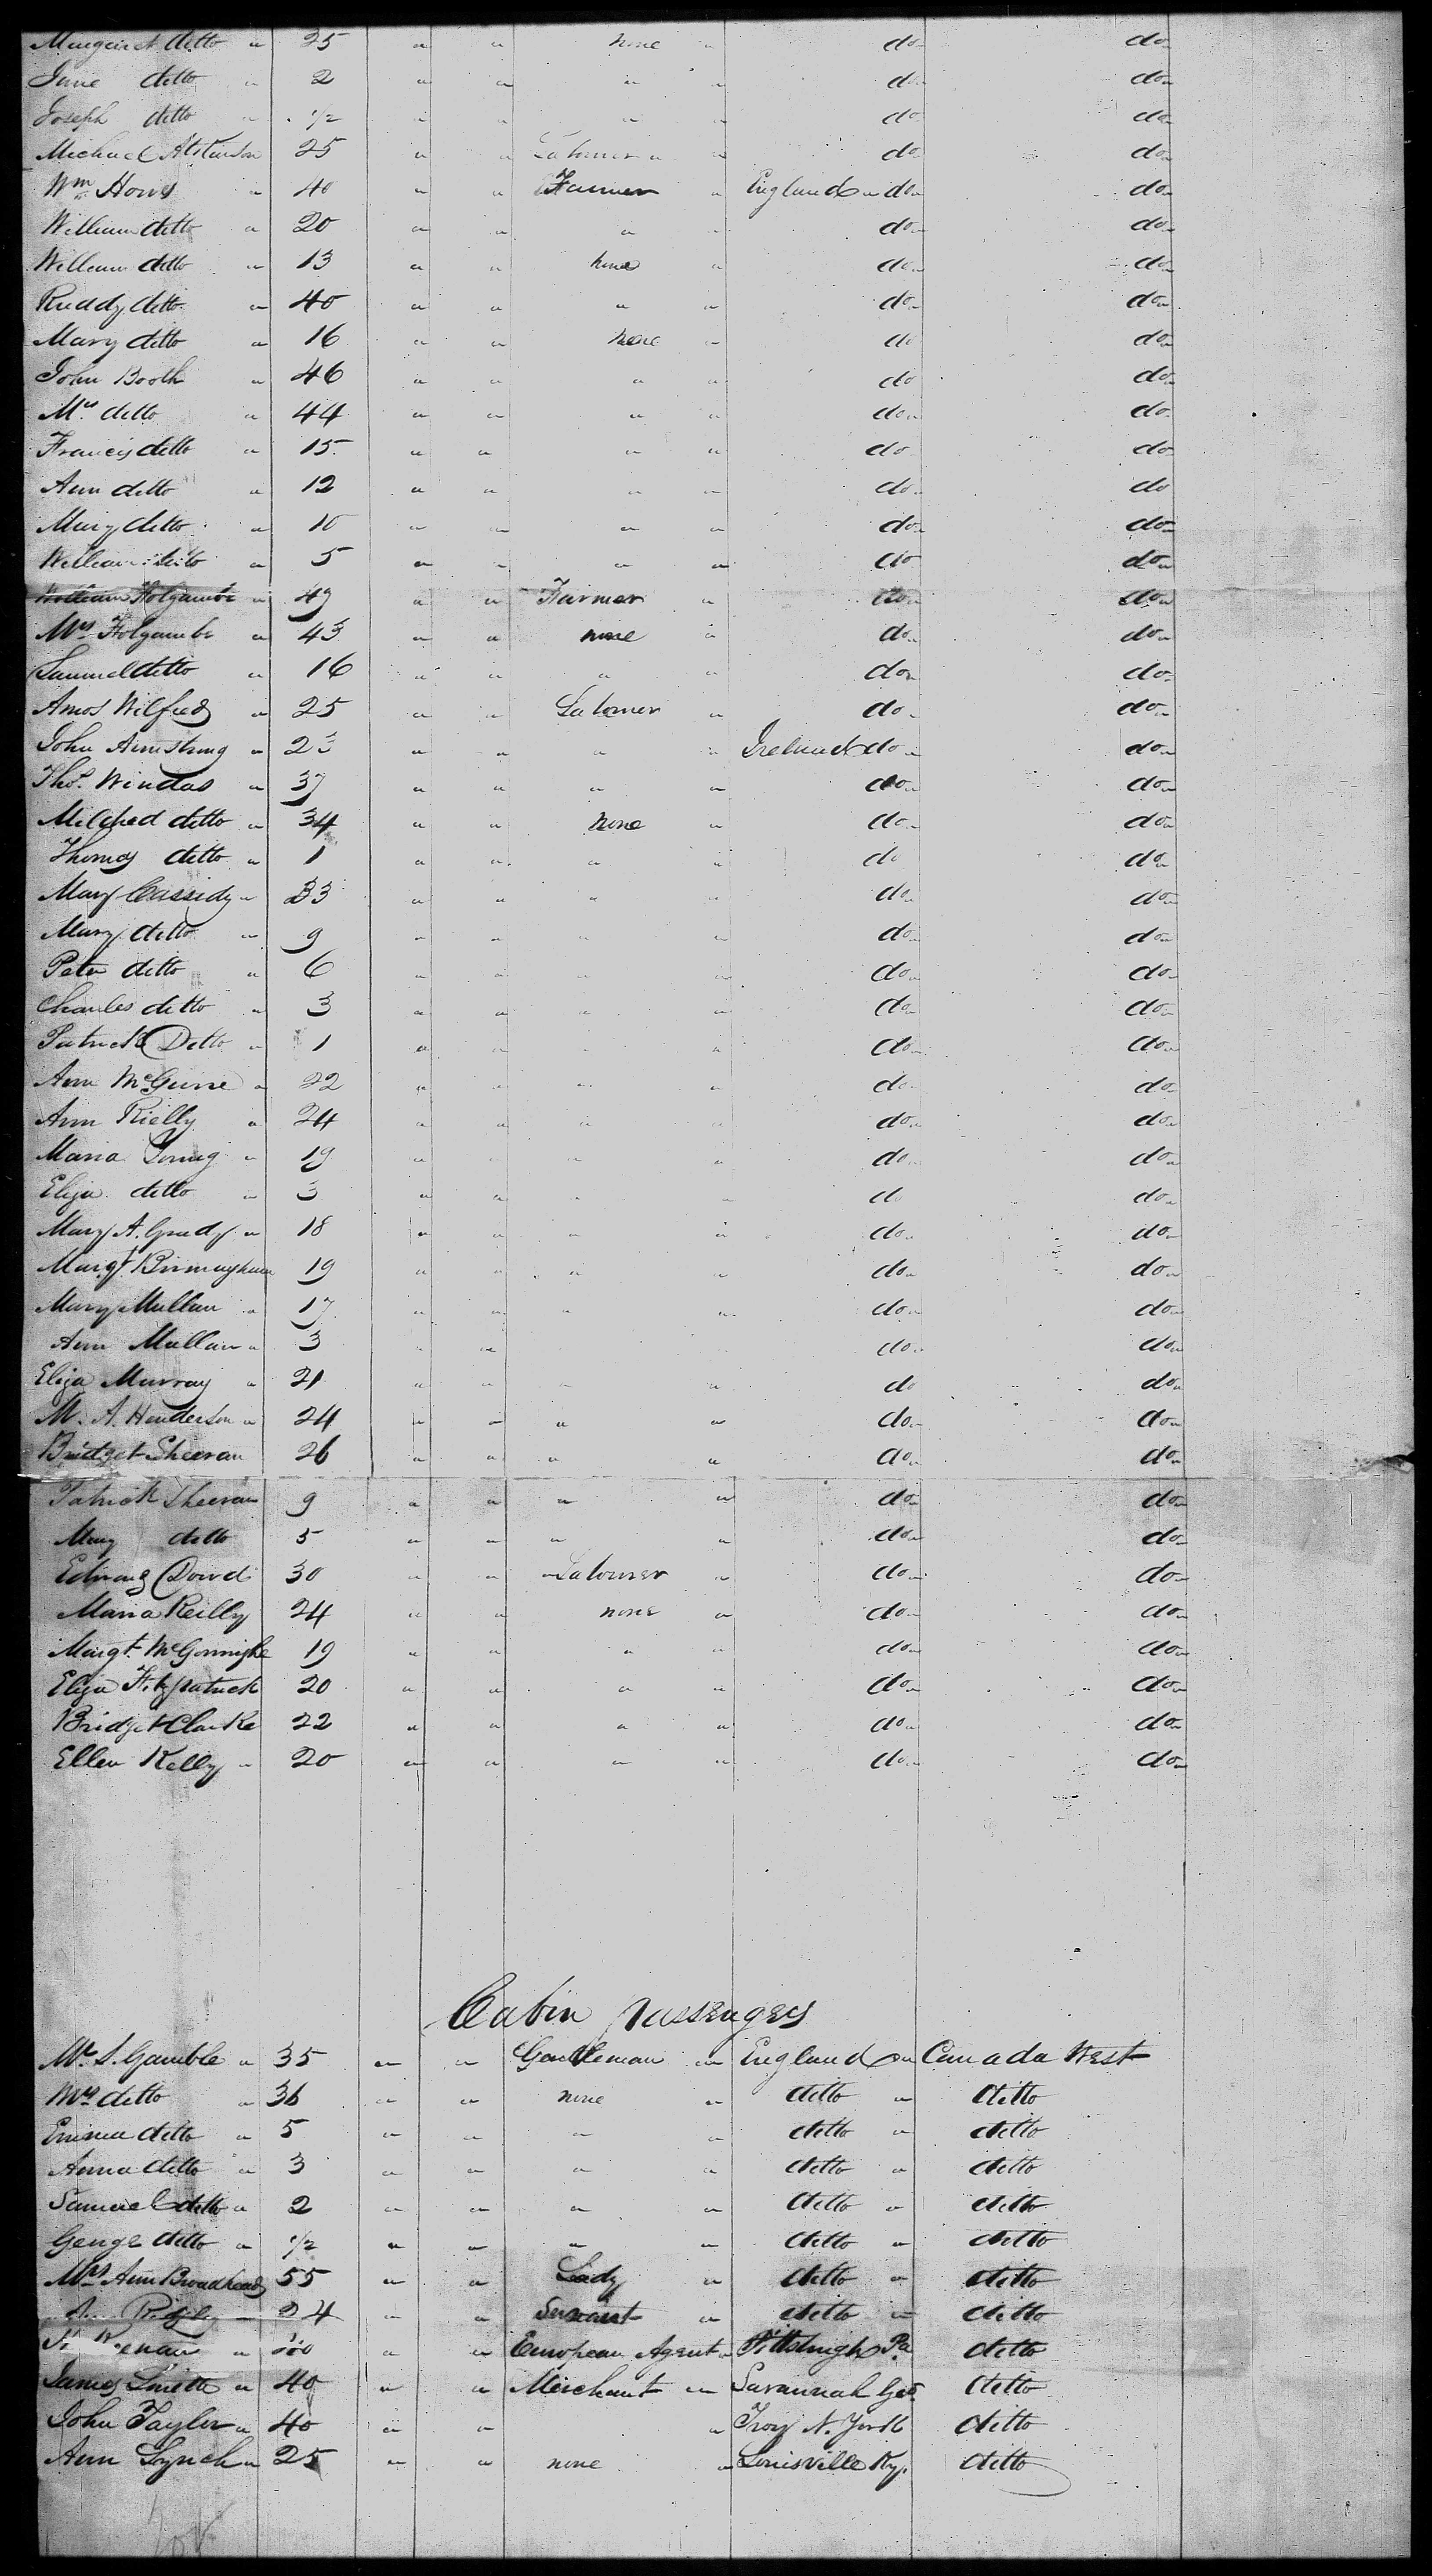 Margaret ditto " 25 " " none " do do
Jane ditto " 2 " " " " do do
Joseph ditto " 1/2 " " " " do do
Michael Atkinson 25 " " Labourer " " do do
Wm Hows " 40 " " Farmer " England " do do
William ditto " 20 " " " " do do
William ditto " 13 " " none " do do
Ruddy ditto " 40 " " " " do do
Mary ditto " 16 " " none " do do
John Booth " 46 " " " " do do
Mrs ditto " 44 " " " " do do
Francis ditto " 15 " " " " do do
Ann ditto " 12 " " " " do do
Mary ditto " 10 " " " " do do
William ditto " 5 " " " " do do
William Holgambe " 49 " " Farmer " do do
Mrs Holgambe " 43 " " none " do do
Samuel ditto " 16 " " " " do do
Amos Wilfred " 25 " " Labourer " do do
John Armstrong " 23 " " " " Ireland do do
Thos. Windas " 37 " " " " do do
Mildred ditto " 34 " " none " do do
Thomas ditto " 1 " " " " do do
Mary Cassidy " 33 " " " " do do
Mary ditto " 9 " " " " do do
Peter ditto " 6 " " " " do do
Charles ditto " 3 " " " " do do
Patrick Ditto " 1 " " " do do
Ann McGuire " 22 " " " " do do
Ann Rielly " 24 " " " " do do
Maria Young " 19 " " " " do do
Eliza ditto " 3 " " " " do do
Mary A. Grady " 18 " " " " do do
Margt Birmingham 19 " " " " do do
Mary Mullan " 17 " " " " do do
Ann Mullan " 3 " " do do
Eliza Murray " 21 " " " " do do
M. A. Henderson " 24 " " " " do do
Bridget Sheeran 26 " " " " do do
Patrick Sheeran 9 " " " " do do
Mary ditto 5 " " " " do do
Edward Dowd 30 " " Labourer " do do
Maria Reilly 24 " " none " do do
Margt. McGonnigle 19 " " " " do do
Eliza Fitzpatrick 20 " " " " do do
Bridget Clarke 22 " " " " do do
Ellen Kelly " 20 " " " " do do
Cabin passengers
Mr. S. Gamble " 35 " " Gentleman " England " Canada West
Mrs ditto " 36 " " none " ditto " ditto
Emma ditto " 5 " " " " ditto " ditto
Anna ditto " 3 " " " " ditto " ditto
Samuel ditto " 2 " " " " ditto " ditto
George ditto " 1/2 " " " " ditto " ditto
Mrs Ann Broadhead 55 " " Lady " ditto " ditto
24 " " Servant " ditto " ditto
" " " European Agent " Pittsburgh Pa ditto
James Smith " 40 " " Merchant " Savannah Geo ditto
John Taylor " 40 " " " Troy N. York ditto
Ann Lynch " 25 " " none " Louisville Ky. ditto